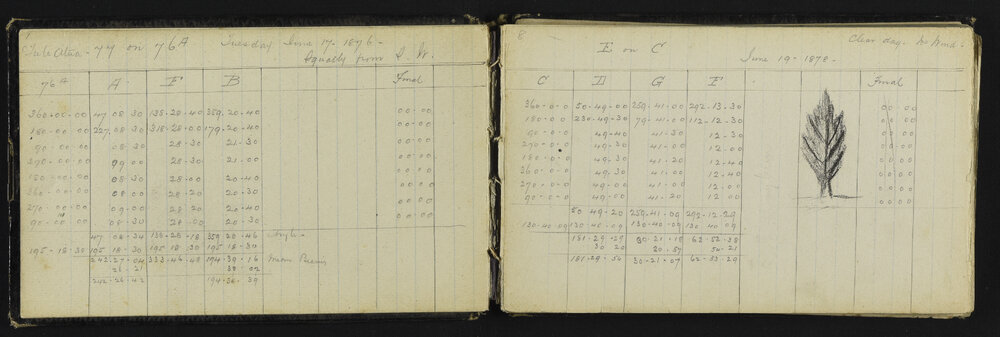 77 on 76A Tuesday June 17- 1876-
Squally from S. W.
76A A F B Final
360-00-00 47 08 30 138-28-40 359-20-40 00-00
180-00-00 227-08 30 318-28-00 179-20-40 00-00
90-00-00 08 30 28-30 21-30 00-00
270-00-00 09 00 28-30 21-00 00-00
180-00-00 08-30 28-00 20-40 00-00
360-00-00 08 00 28-20 20-30 00 00
270-00-00 09-00 28-20 20-40 00 00
90-00-00 08-30 28-00 20-30 00-00
47 08-34 138-28-18 359 20-46 Angle-
195-18-30 195 18-30 195 18 30 195-18-30
242-27-04 333-46-48 194-39-16 Mean Bearing
26-21 38-02
242-26-42 194-38-39
8 E on C Clear day. No Wind-
June 19-1878-
C D G F Final
360-0-0 50-49-00 259-41-00 292-13-30 00-00
180-0-0 230-49-30 79-41-00 112-12-30 00 00
90-0-0 49-40 41-30 12-30 00 00
270-0-0 49-30 41-30 12-00 00 00
180-0-0 49-30 41-20 12-40 00 00
360-0-0 49-30 41-00 12-30 00 00
270-0-0 49-00 41-20 12-00 00 00
90-0-0 49-00 41-20 12-00 00 00
50 49-20 259-41-09 292-12-29
130-40 09 130-40-09 130-40-09 130 40 09
181-29-29 30-21-18 62-52-38
30 20 20-57 54-21
181-29-54 30-21-07 62-53-29